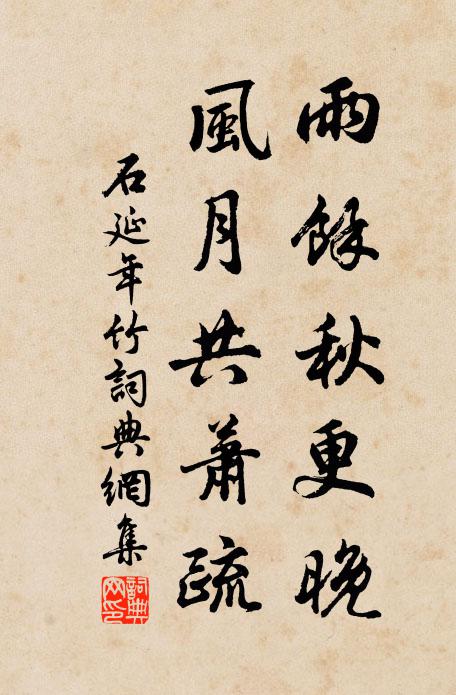 雨餘秋更晚
風月共蕭疏
石延年竹詞典網集
詞典